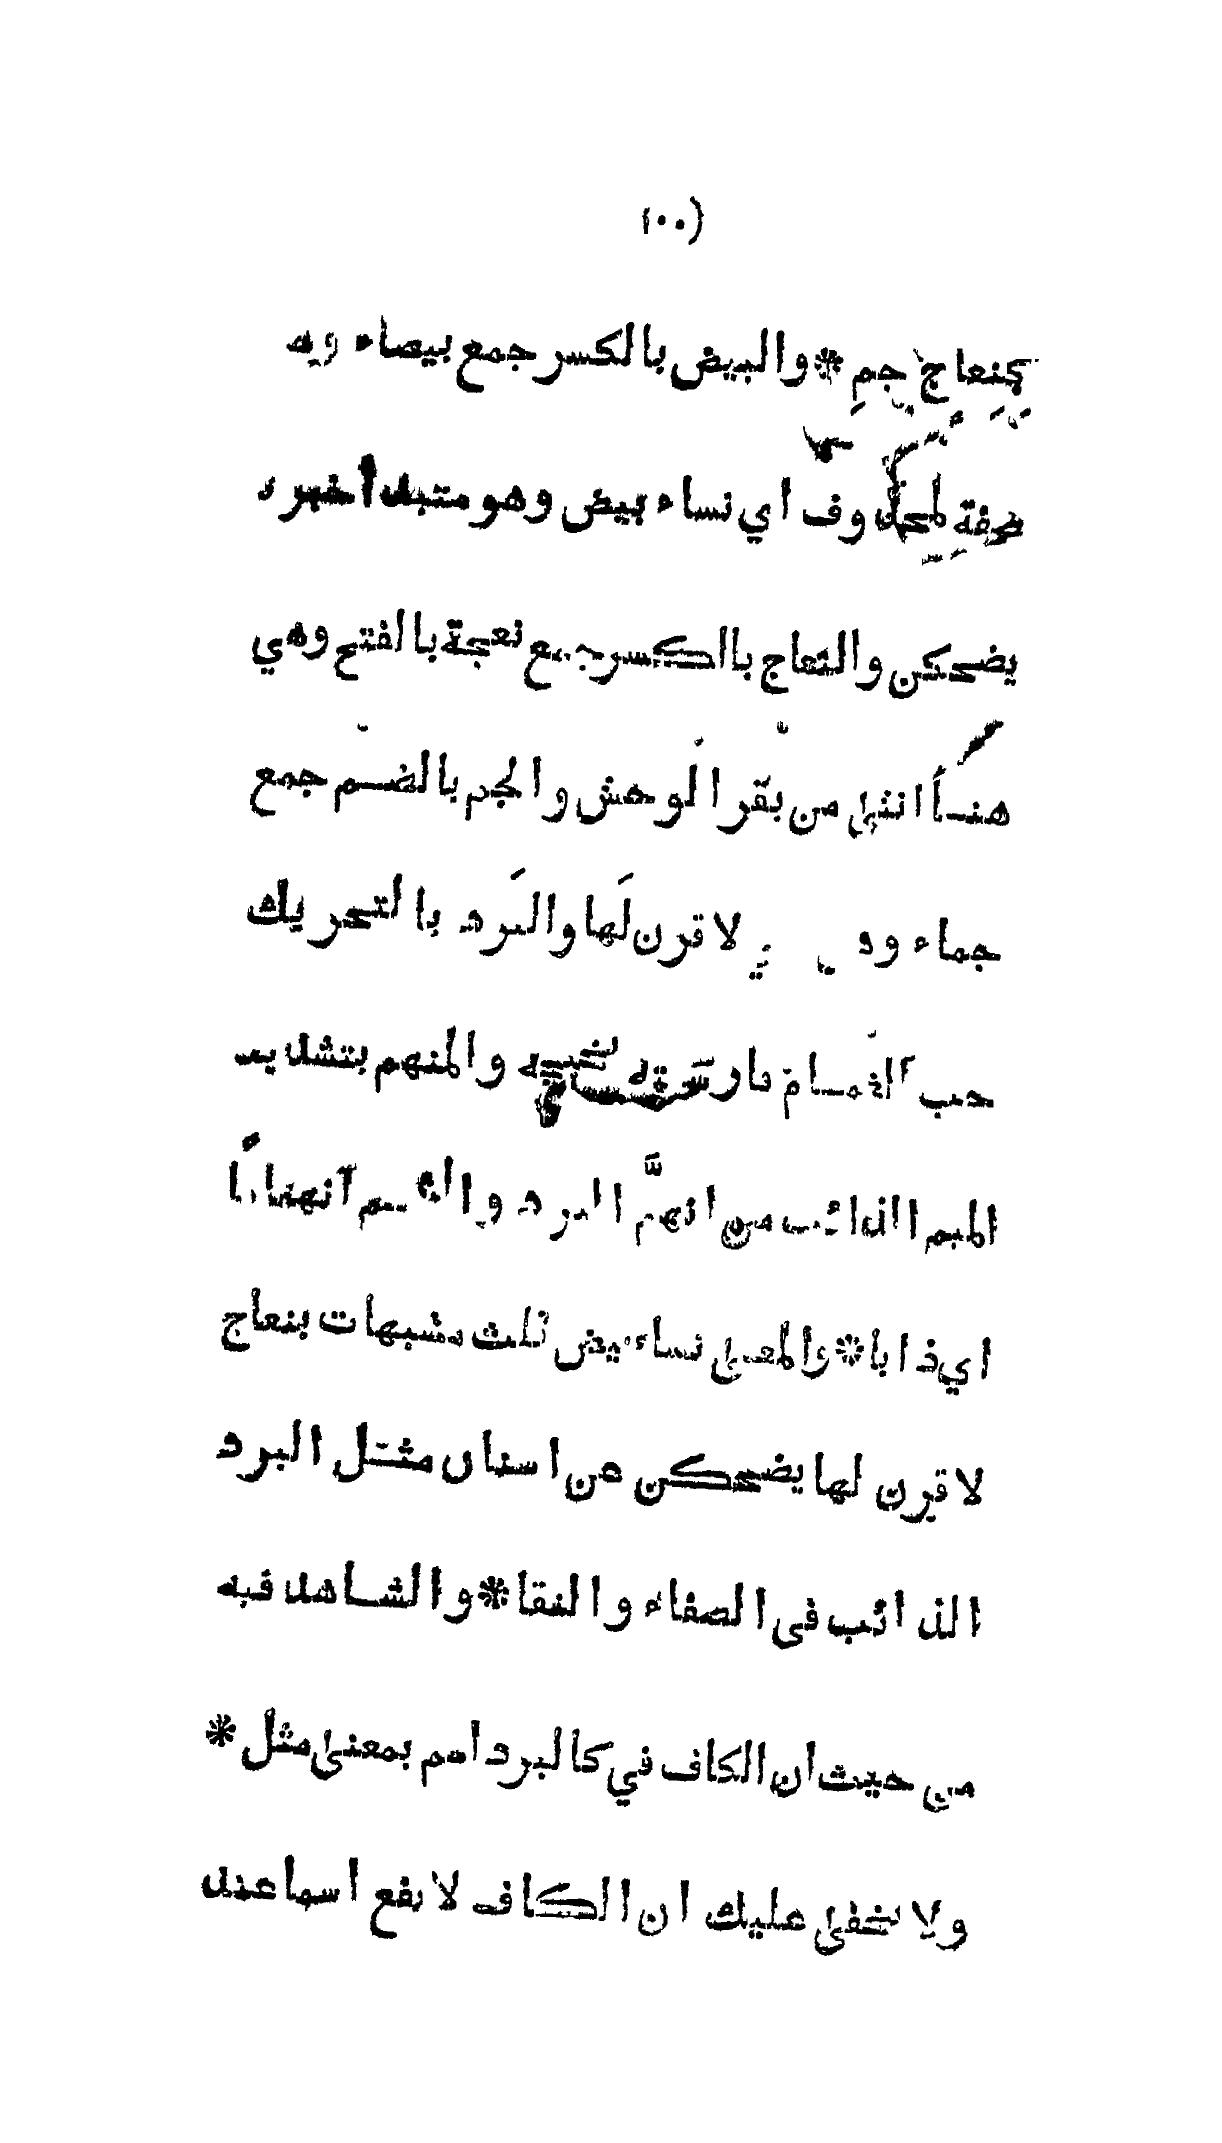 (١٠٠
كنعاج جم * والبيض بالكسر جمع بيضاء وهه
صفة لمحذوف اي نساء بيض وهو مبتدأ خبره
يضحكن والنعاج باالكسر جمع نعجة بالفتح وهي
هنا انثى من بقر الوحش والجم بالضم جمع
جماء و لا قرن لها والبرد بالتحريك
حب الغمام والمنهم بتشديد
الميم الذائب من انهم البرد و انهماما
اي ذابا * والمعنى نساء بيض ثلث مشبهات بنعاج
لا قرن لها يضحكن عن اسنان مثل البرد
الذائب في الصفاء والنقا * والشاهد فيه
من حيث ان الكاف في كالبرد اسم بمعنى مثل *
ولا يخفى عليك ان الكاف لا يقع اسما عند